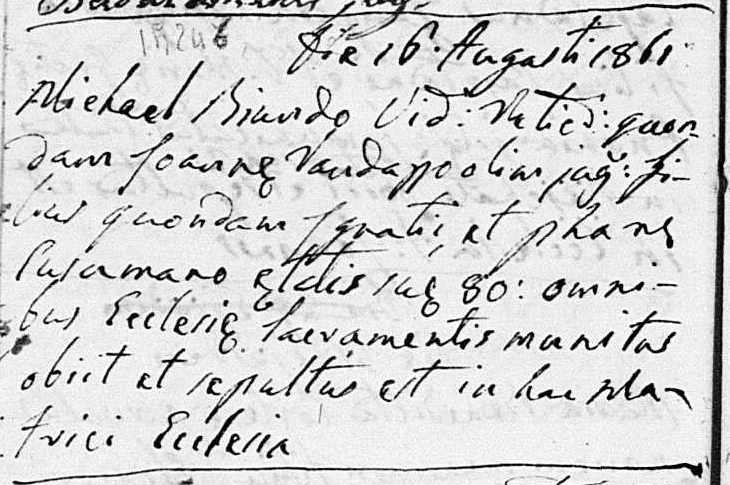 Die 16. Augusti 1861
Michael Biundo Vid: Relict: quon-
dam Joannę Vandappo olim jug: fi-
lius quondam Ignatii, et phanę
Cusumano ętatis suę 80: omni-
bus Eclesię Sacramentis munitus
obiit et sepultus est in hac Ma-
trici Eclesia